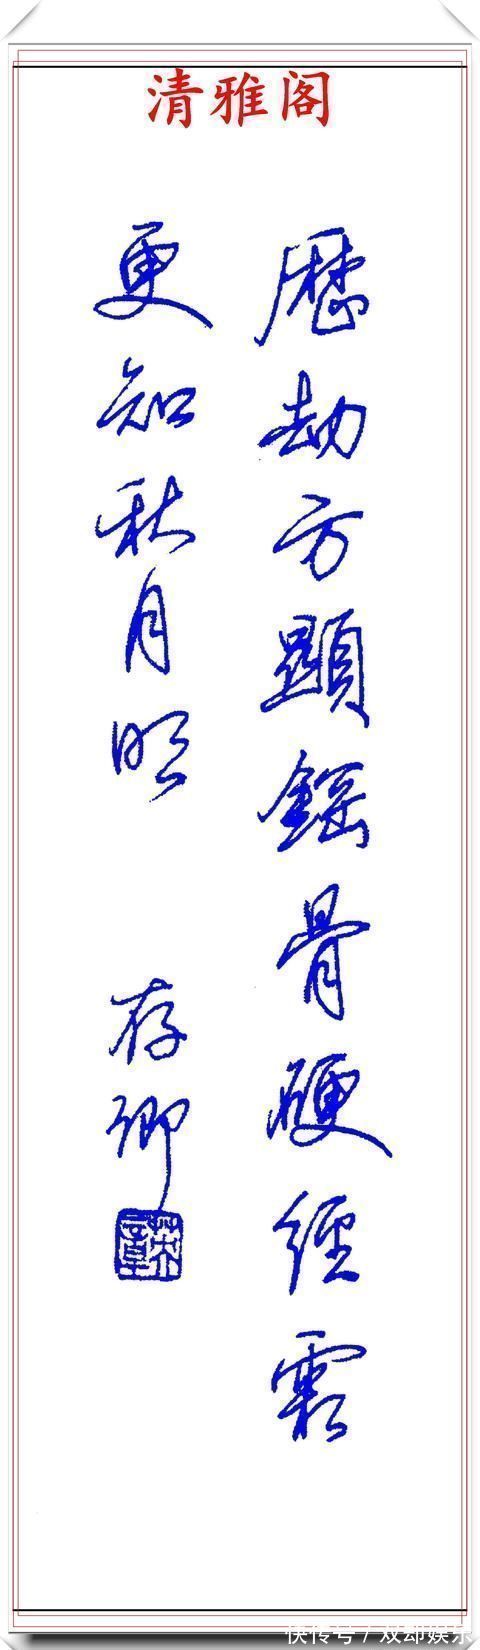 清雅阁
歷劫方顯錚骨硬經霜
更知秋月明
存卿
快传号/双却娱乐